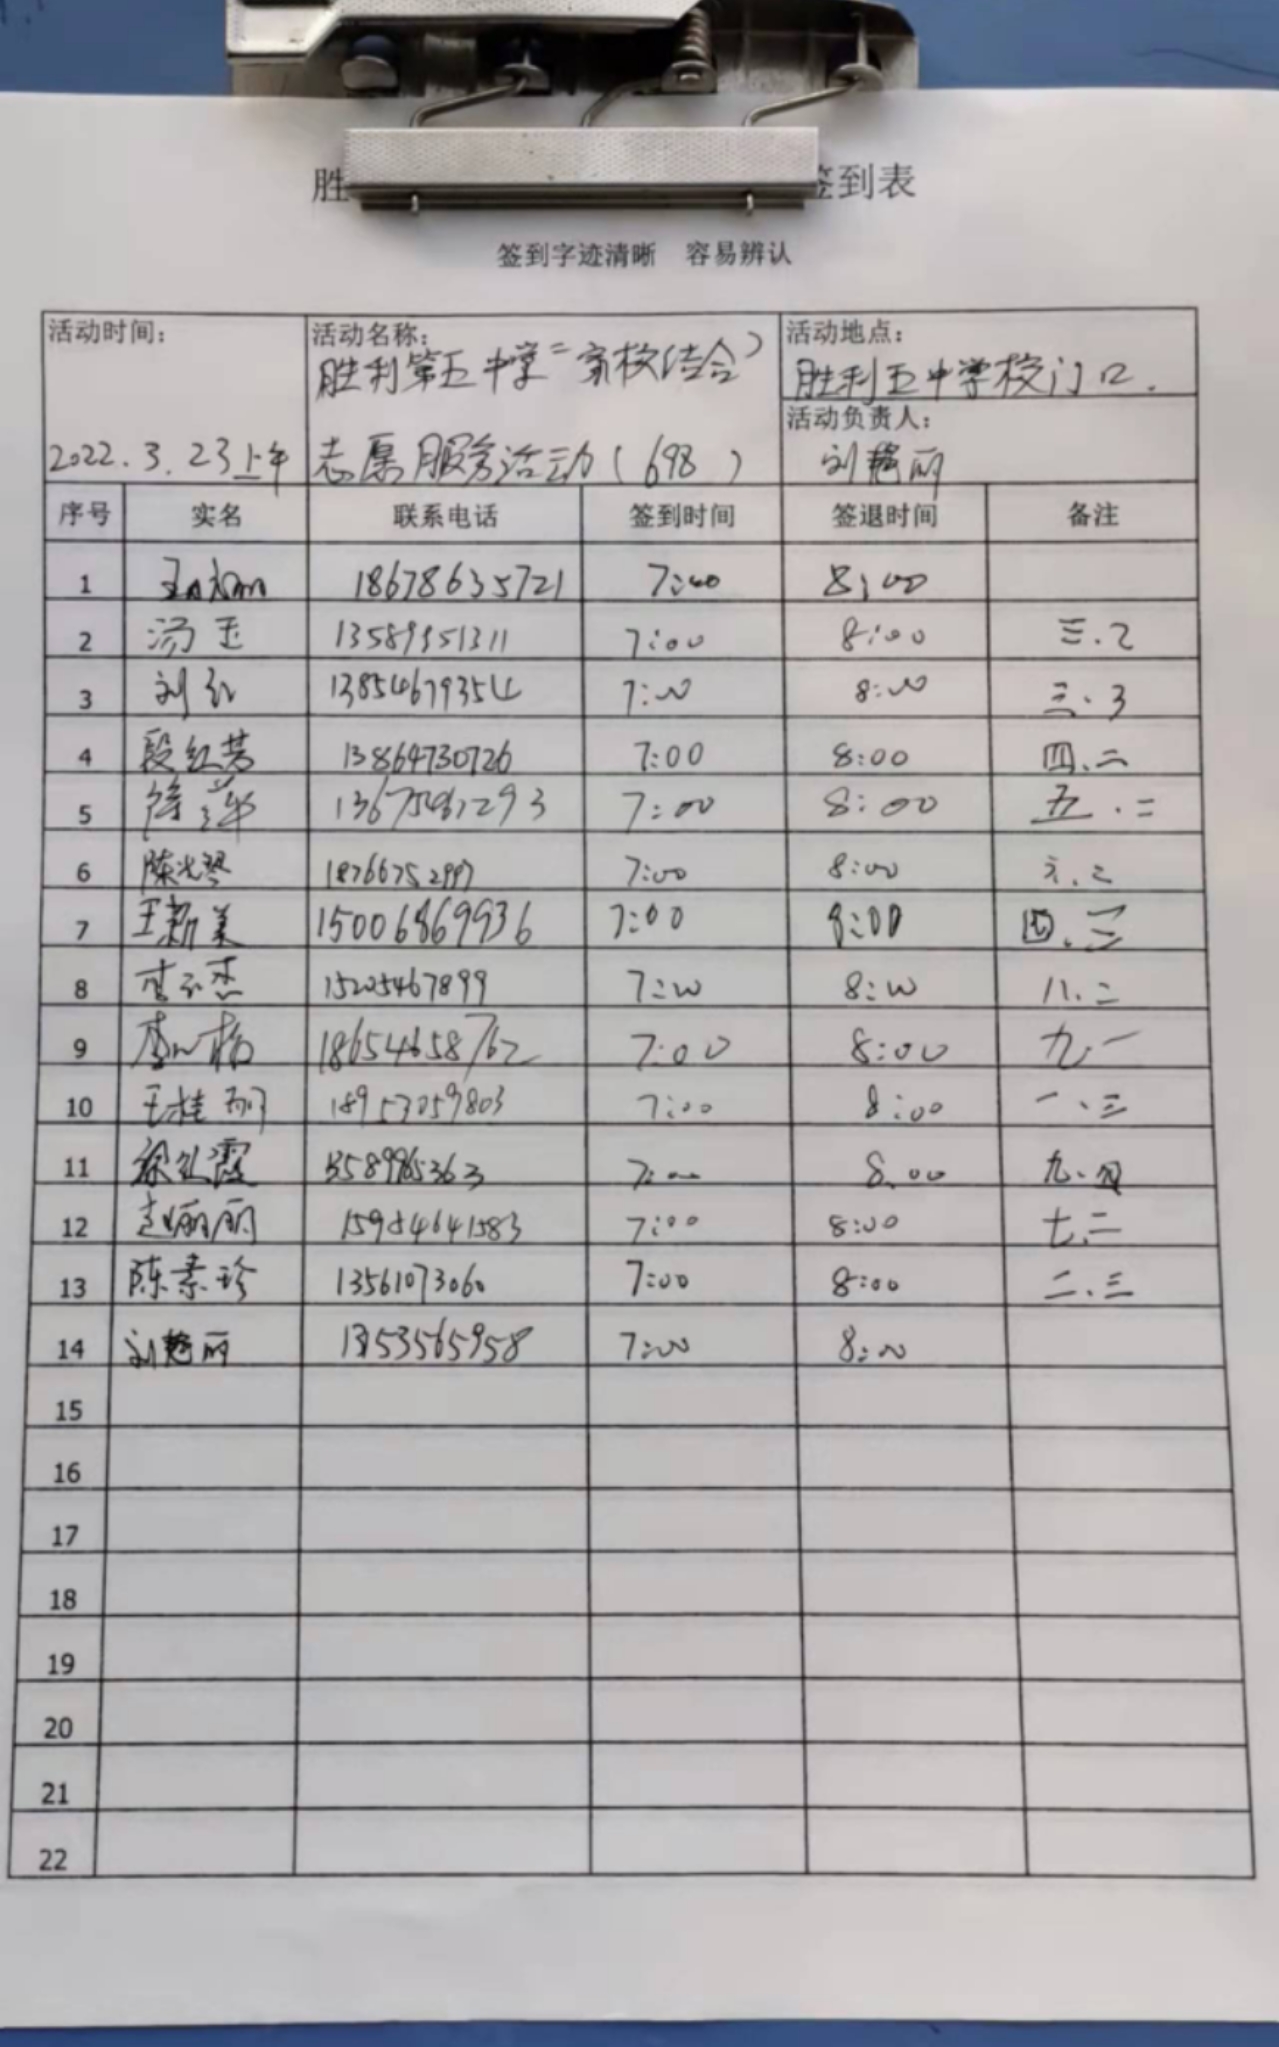 胜 签到表
签到字迹清晰 容易辨认
活动时间： 活动名称： 活动地点：
胜利第五中学"家校结合" 胜利五中学校门口.
活动负责人：
2022.3.23上午 志愿服务活动(698) 刘艳丽
序号 实名 联系电话 签到时间 签退时间 备注
1 18678635721 7:00 8:00
2 汤玉 13589951311 7:00 8:00 三.2
3 刘红 13854679354 7:00 8:00 三.3
4 段红芳 13864730726 7:00 8:00 四.二
5 徐萍 7:00 8:00 五.二
6 陈光琴 18766752997 7:00 8:00 六.二
7 王新美 15006869936 7:00 8:00 四.三
8 15205467899 7:00 8:00 八.二
9 18654658762 7:00 8:00 九.一
10 王桂丽 18953059803 7:00 8:00 一.三
11 徐红霞 13589965363 7:00 8.00 九.四
12 赵丽丽 15954641583 7:00 8:00 七.二
13 陈素珍 13561073060 7:00 8:00 二.三
14 刘艳丽 7:00 8:00
15
16
17
18
19
20
21
22